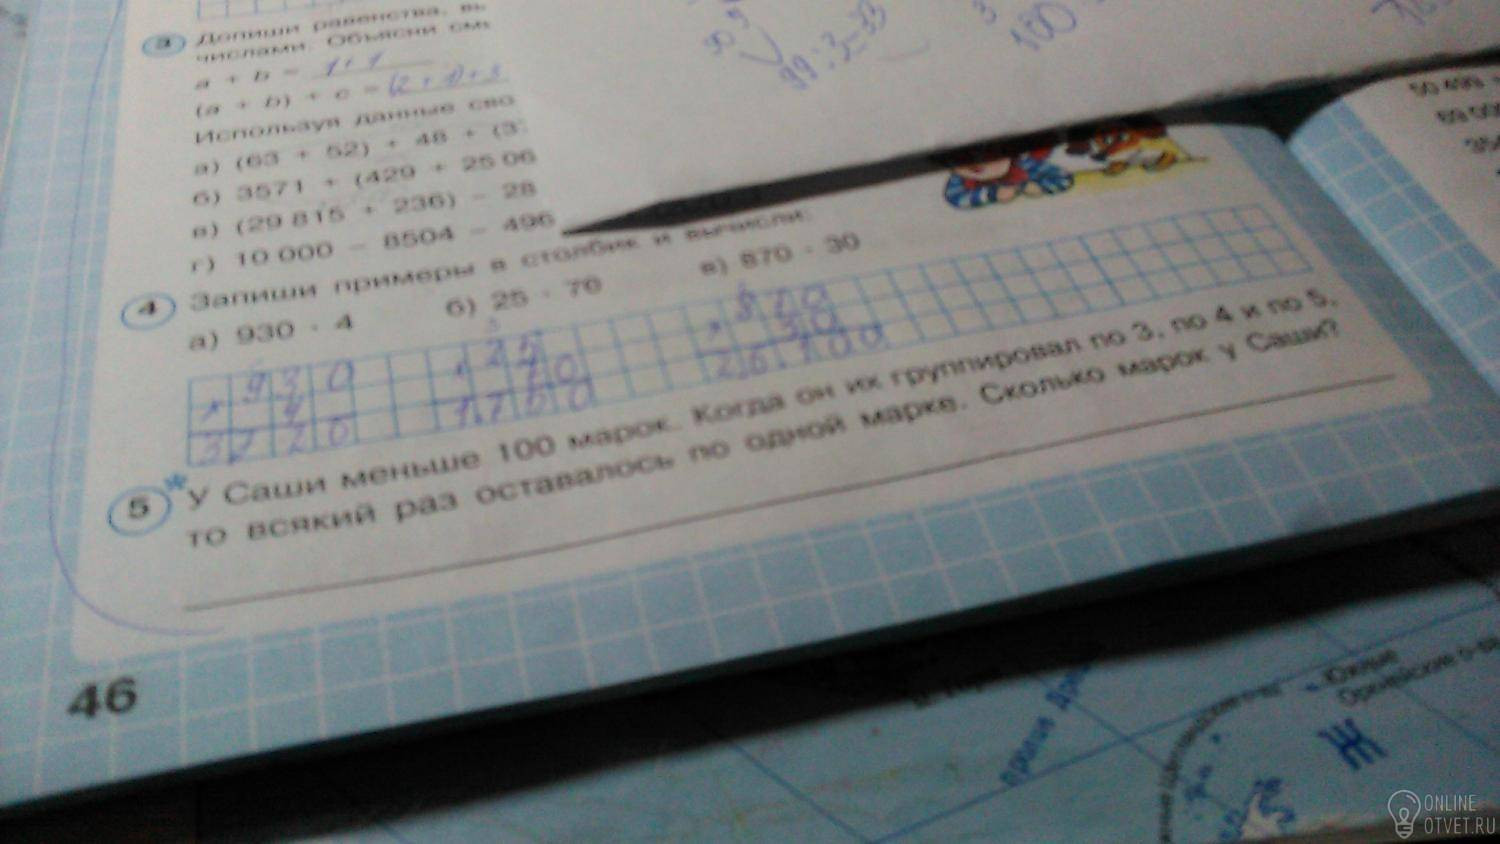 3 Допиши равенства, вы
числами. Объясни смы
a + b = 1+1
(a + b) + c = (2+1)+3
Используя данные сво
а) (63 + 52) + 48 + (3
б) 3571 + (429 + 25 06
в) (29 815 + 236) – 28
г) 10 000 – 8504 – 496
4 Запиши примеры в столбик и вычисли:
а) 930 · 4 б) 25 · 70 в) 870 · 30
× 930 × 25 ×
4 70 30
3720 1750 26100
5* У Саши меньше 100 марок. Когда он их группировал по 3, по 4 и по 5,
то всякий раз оставалось по одной марке. Сколько марок у Саши?
46
99:3=33
3
180
50 499
Южные
Оркнейские о-ва
ONLINE
OTVET.RU